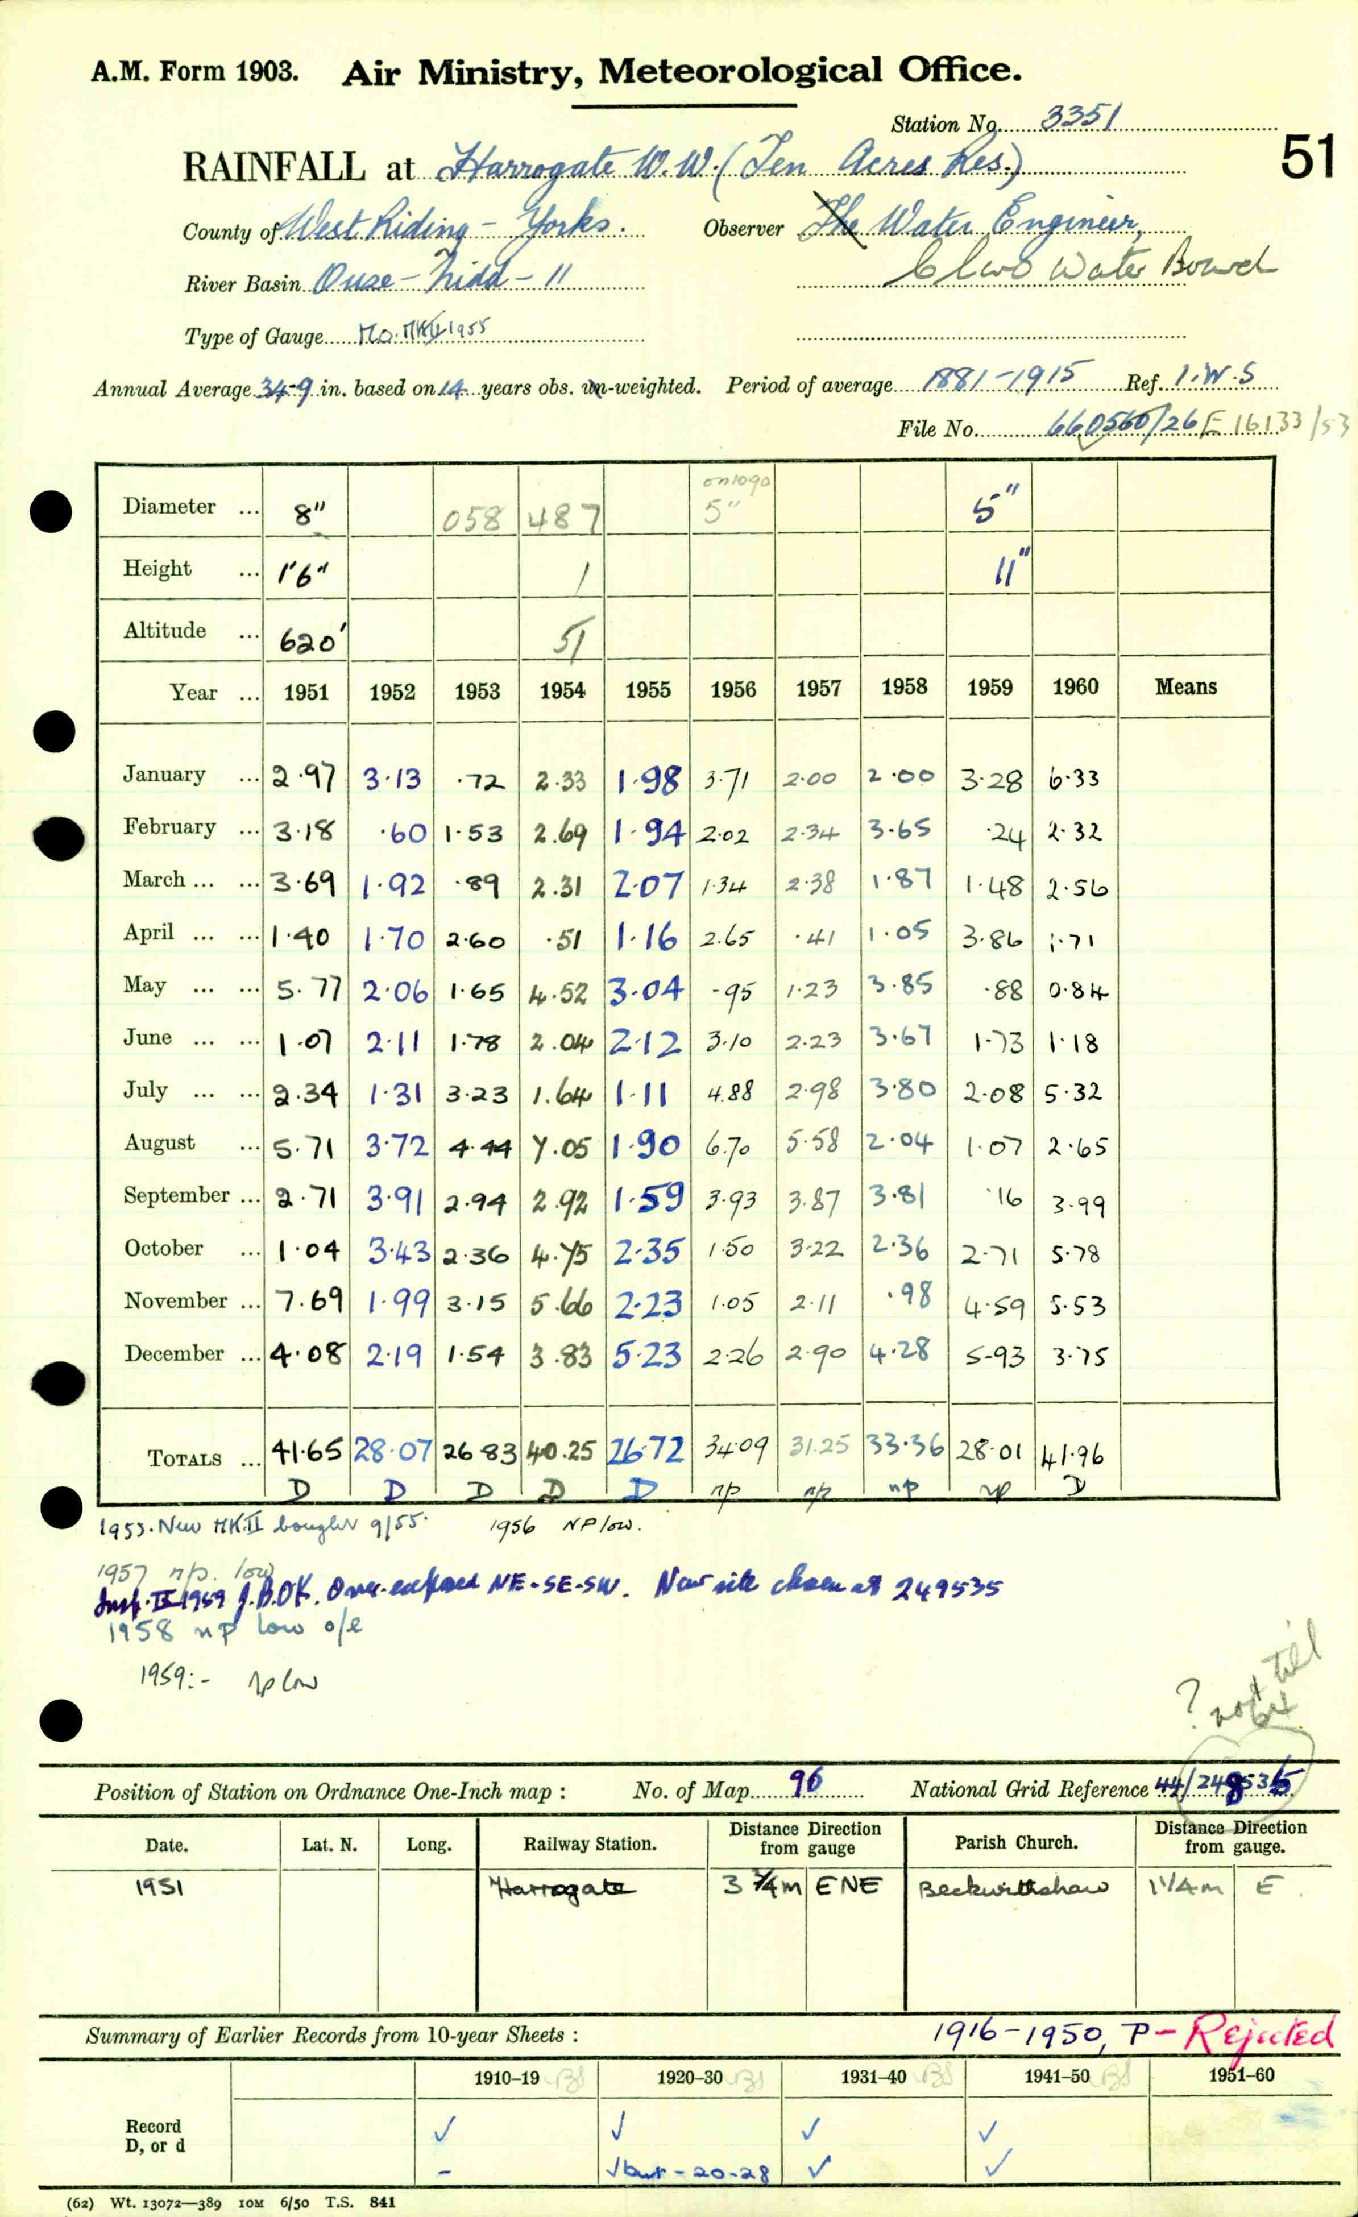 A.M. Form 1903. Air Ministry, Meteorological Office.
Station No. 3351
51
RAINFALL at Harrogate W.W. (Ten Acres Res.)
County of West Riding - Yorks. Observer The Water Engineer,
River Basin Ouse - Nidd - 11 Claro Water Board
Type of Gauge Mo. MKII 1955
Annual Average 34.9 in. based on 14 years obs. un-weighted. Period of average 1881-1915 Ref. I.W.S
File No. 660560/26 E 16133/53
on 1090
Diameter ... 8" 058 487 5" 5"
Height ... 1'6" 1 11"
Altitude ... 620' 51
Year ... 1951 1952 1953 1954 1955 1956 1957 1958 1959 1960 Means
January ... 2.97 3.13 .72 2.33 1.98 3.71 2.00 2.00 3.28 6.33
February ... 3.18 .60 1.53 2.69 1.94 2.02 2.34 3.65 .24 2.32
March ... ... 3.69 1.92 .89 2.31 2.07 1.34 2.38 1.87 1.48 2.56
April ... ... 1.40 1.70 2.60 .51 1.16 2.65 .41 1.05 3.86 1.71
May ... ... 5.77 2.06 1.65 4.52 3.04 .95 1.23 3.85 .88 0.84
June ... ... 1.07 2.11 1.78 2.04 2.12 3.10 2.23 3.67 1.73 1.18
July ... ... 2.34 1.31 3.23 1.64 1.11 4.88 2.98 3.80 2.08 5.32
August ... 5.71 3.72 4.44 7.05 1.90 6.70 5.58 2.04 1.07 2.65
September ... 2.71 3.91 2.94 2.92 1.59 3.93 3.87 3.81 .16 3.99
October ... 1.04 3.43 2.36 4.75 2.35 1.50 3.22 2.36 2.71 5.78
November ... 7.69 1.99 3.15 5.66 2.23 1.05 2.11 .98 4.59 5.53
December ... 4.08 2.19 1.54 3.83 5.23 2.26 2.90 4.28 5.93 3.75
TOTALS ... 41.65 28.07 26.83 40.25 26.72 34.09 31.25 33.36 28.01 41.96
D D D D D np np np np D
1953. New MKII bought 9/55. 1956 NP low.
1957 n/p. low
Insp. IX 1959 J.B.OK. Over-exposed NE-SE-SW. New site chosen at 249535
1958 np low o/e
1959:- np low
? not till 64
Position of Station on Ordnance One-Inch map : No. of Map 96 National Grid Reference 44/248535
Date. Lat. N. Long. Railway Station. Distance from Direction gauge Parish Church. Distance from Direction gauge.
1951 Harrogate 3 3/4 m ENE Beckwithshaw 1 1/4 m E
Summary of Earlier Records from 10-year Sheets : 1916-1950, P - Rejected
1910-19 1920-30 1931-40 1941-50 1951-60
Record ✓ ✓ ✓ ✓
D, or d - ✓ but - 20-28 ✓ ✓
(62) Wt. 13072—389 10M 6/50 T.S. 841